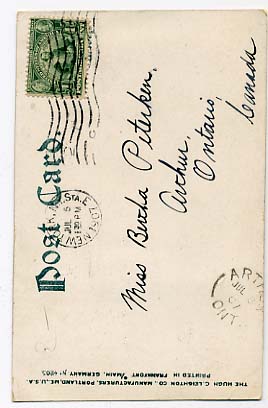 Post Card.
Miss Bertha Peterken.
Arthur,
Ontario,
Canada
STA. E.
JUL 5
PM
ARTHUR
JUL
07
ONT.
THE HUGH C. LEIGHTON CO., MANUFACTURERS, PORTLAND, ME., U.S.A.
PRINTED IN FRANKFORT A/MAIN, GERMANY